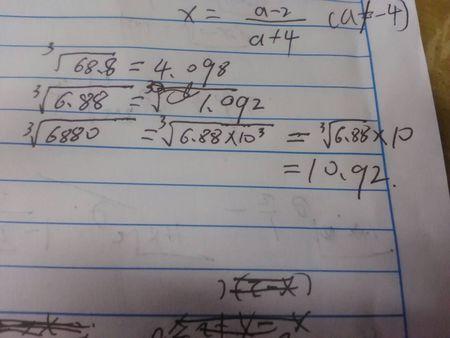 x = (a-2)/(a+4) (a≠-4)
∛68.8 = 4.098
∛6.88 = 1.092
∛6880 = ∛6.88×10³ = ∛6.88×10
= 10.92.